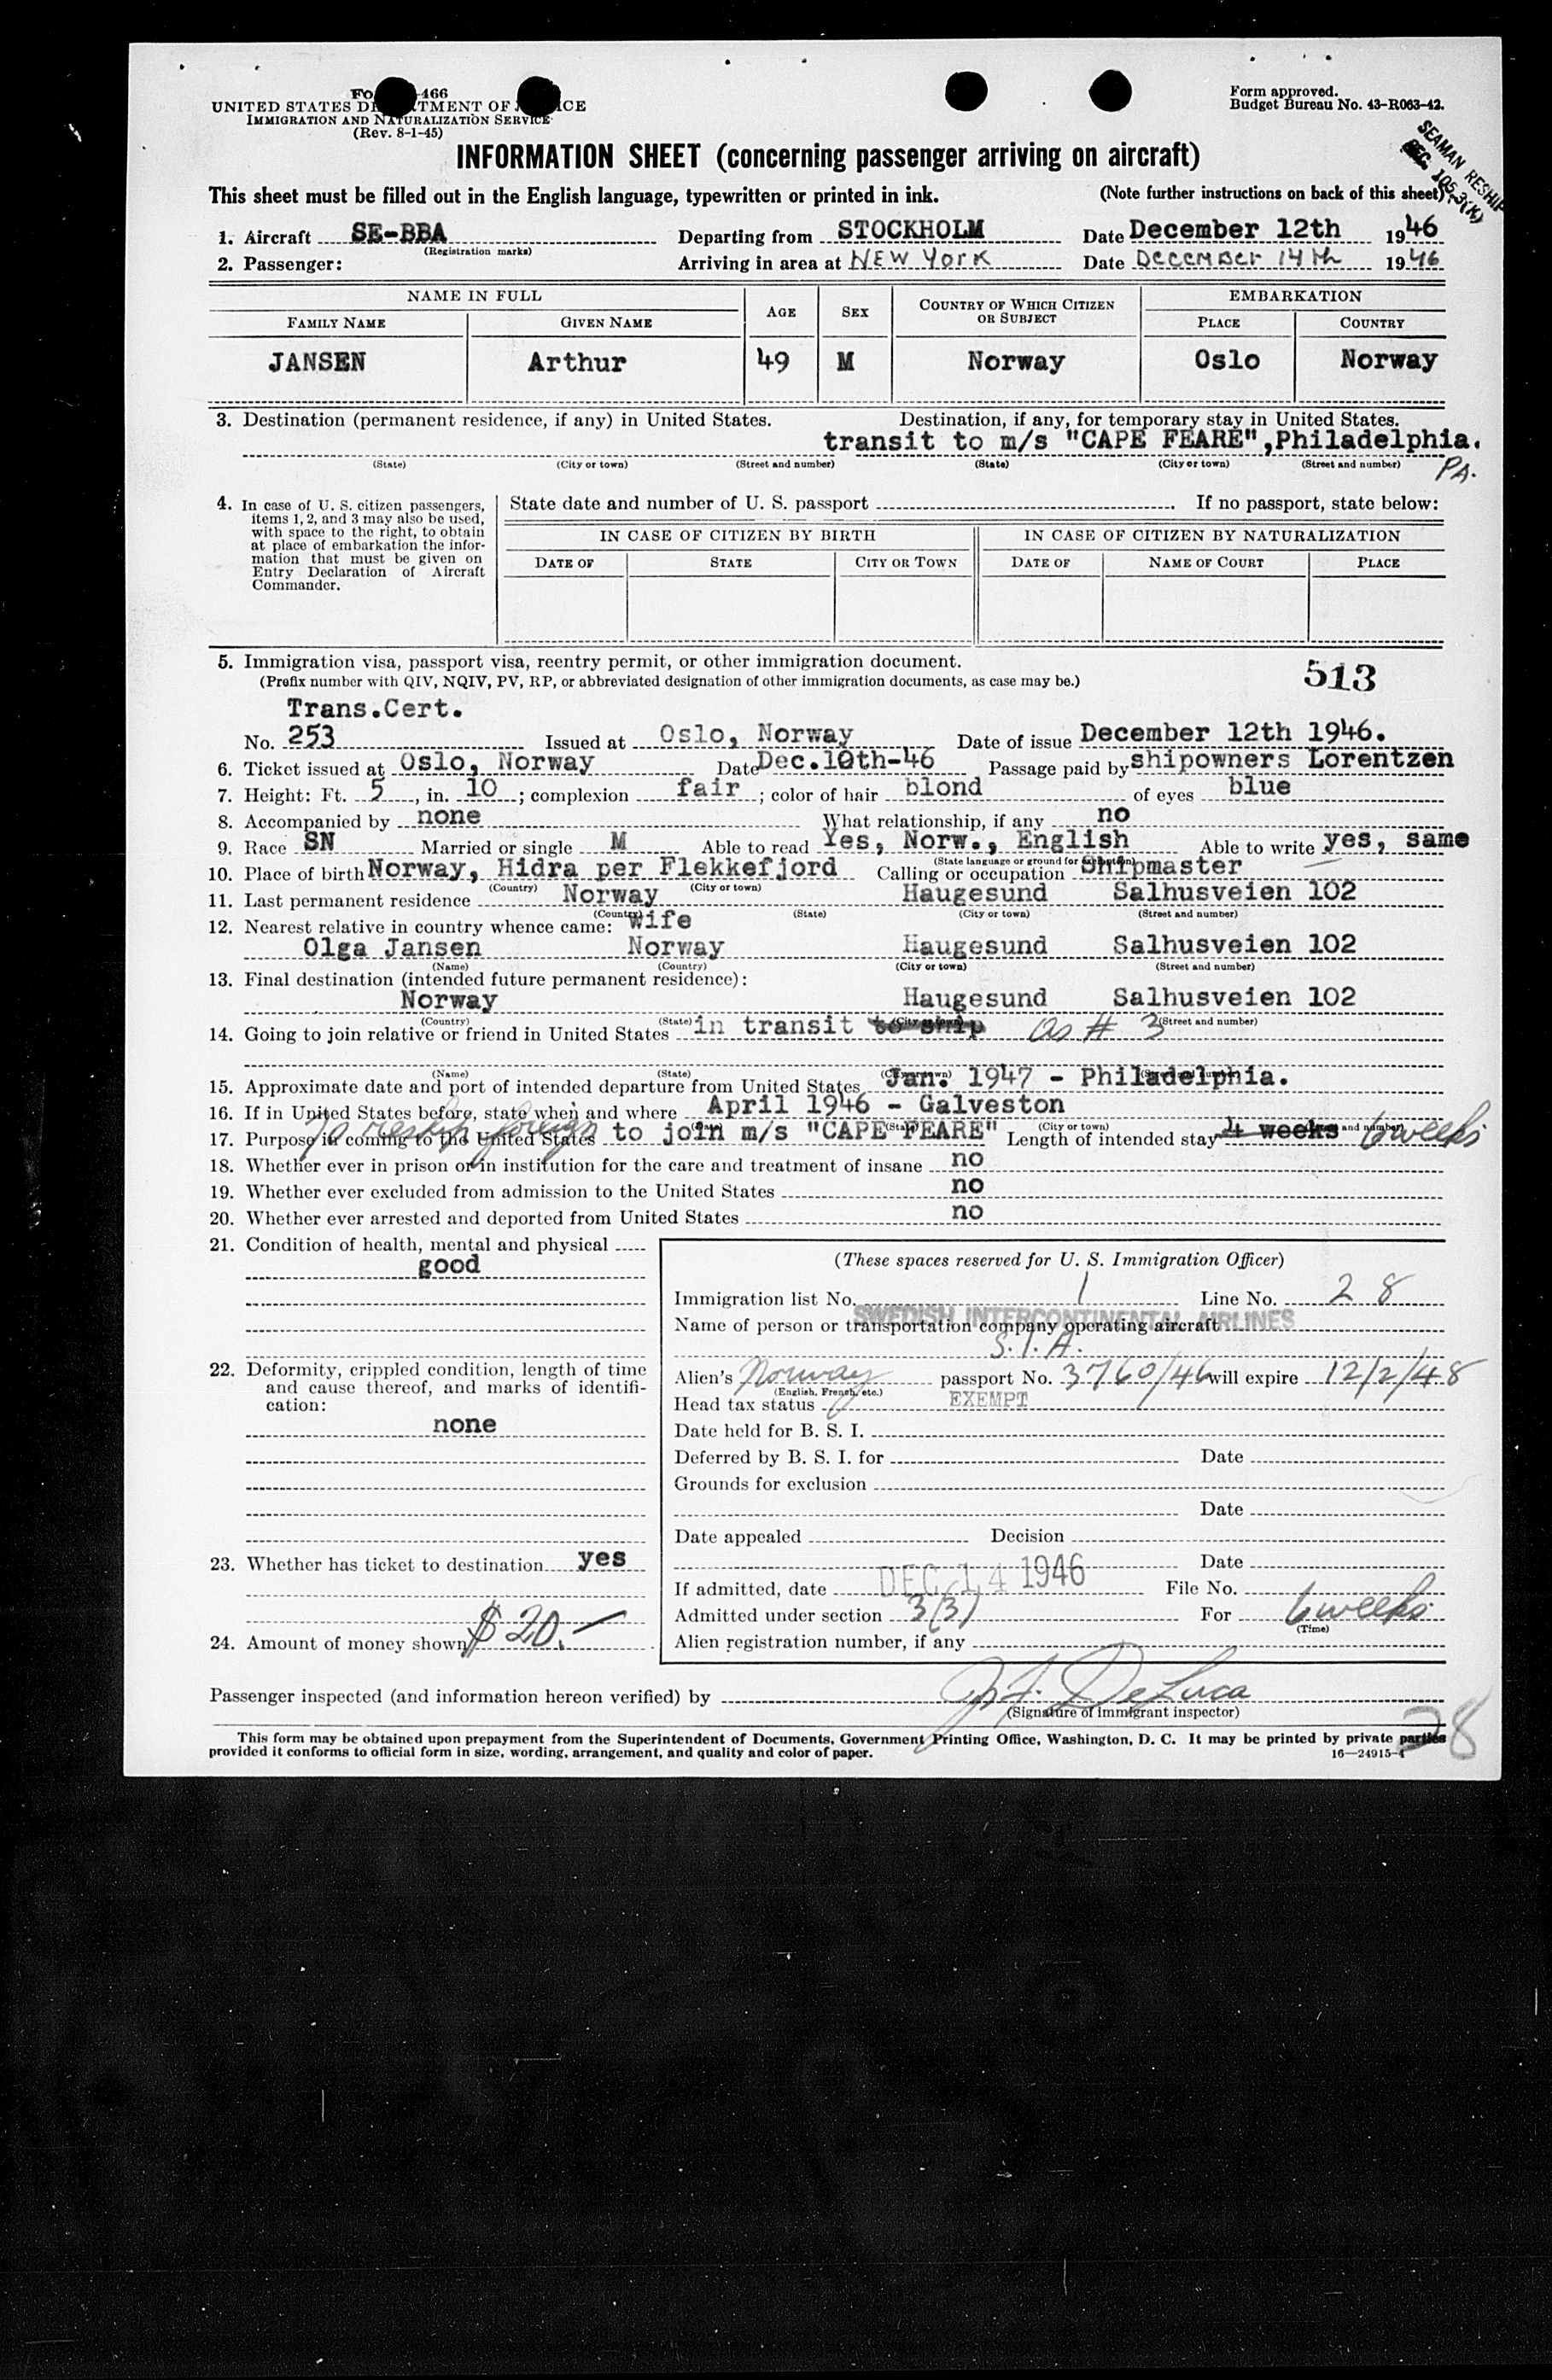 Form 466
UNITED STATES DEPARTMENT OF JUSTICE
IMMIGRATION AND NATURALIZATION SERVICE
(Rev. 8-1-45)
Form approved.
Budget Bureau No. 43-R063-42.
SEAMAN RESHIP
SEC. 105.3(K)
INFORMATION SHEET (concerning passenger arriving on aircraft)
This sheet must be filled out in the English language, typewritten or printed in ink. (Note further instructions on back of this sheet)
1. Aircraft SE-BBA Departing from STOCKHOLM Date December 12th 1946
(Registration marks)
2. Passenger: Arriving in area at NEW YORK Date DECEMBER 14th 1946
NAME IN FULL AGE SEX COUNTRY OF WHICH CITIZEN OR SUBJECT EMBARKATION
FAMILY NAME GIVEN NAME PLACE COUNTRY
JANSEN Arthur 49 M Norway Oslo Norway
3. Destination (permanent residence, if any) in United States. Destination, if any, for temporary stay in United States.
transit to m/s "CAPE FEARE",Philadelphia.
(State) (City or town) (Street and number) (State) (City or town) (Street and number) PA.
4. In case of U. S. citizen passengers, items 1, 2, and 3 may also be used, with space to the right, to obtain at place of embarkation the information that must be given on Entry Declaration of Aircraft Commander.
State date and number of U. S. passport If no passport, state below:
IN CASE OF CITIZEN BY BIRTH IN CASE OF CITIZEN BY NATURALIZATION
DATE OF STATE CITY OR TOWN DATE OF NAME OF COURT PLACE
5. Immigration visa, passport visa, reentry permit, or other immigration document. 513
(Prefix number with QIV, NQIV, PV, RP, or abbreviated designation of other immigration documents, as case may be.)
Trans.Cert.
No. 253 Issued at Oslo, Norway Date of issue December 12th 1946.
6. Ticket issued at Oslo, Norway Date Dec.10th-46 Passage paid by shipowners Lorentzen
7. Height: Ft. 5, in. 10; complexion fair; color of hair blond of eyes blue
8. Accompanied by none What relationship, if any no
9. Race SN Married or single M Able to read Yes, Norw., English Able to write yes, same
(State language or ground for exemption)
10. Place of birth Norway, Hidra per Flekkefjord Calling or occupation Shipmaster
(Country) (City or town)
11. Last permanent residence Norway Haugesund Salhusveien 102
(Country) (State) (City or town) (Street and number)
12. Nearest relative in country whence came: wife
Olga Jansen Norway Haugesund Salhusveien 102
(Name) (Country) (City or town) (Street and number)
13. Final destination (intended future permanent residence):
Norway Haugesund Salhusveien 102
(Country) (State) (City or town) (Street and number)
14. Going to join relative or friend in United States in transit to ship as # 3
(Name) (State) (City or town) (Street and number)
15. Approximate date and port of intended departure from United States Jan. 1947 - Philadelphia.
16. If in United States before, state when and where April 1946 - Galveston
(State) (City or town) (Street and number)
To reship foreign
17. Purpose in coming to the United States to join m/s "CAPE FEARE" Length of intended stay 4 weeks 6 weeks
18. Whether ever in prison or in institution for the care and treatment of insane no
19. Whether ever excluded from admission to the United States no
20. Whether ever arrested and deported from United States no
21. Condition of health, mental and physical
good
22. Deformity, crippled condition, length of time and cause thereof, and marks of identification:
none
23. Whether has ticket to destination yes
24. Amount of money shown $ 20.-
(These spaces reserved for U. S. Immigration Officer)
Immigration list No. 1 Line No. 28
SWEDISH INTERCONTINENTAL AIRLINES
Name of person or transportation company operating aircraft
S.I.A.
Alien's Norway passport No. 3760/46 will expire 12/2/48
(English, French, etc.)
Head tax status EXEMPT
Date held for B. S. I.
Deferred by B. S. I. for Date
Grounds for exclusion
Date
Date appealed Decision
Date
If admitted, date DEC 14 1946 File No.
Admitted under section 3(3) For 6 weeks
(Time)
Alien registration number, if any
Passenger inspected (and information hereon verified) by DeLuca
(Signature of immigrant inspector)
28
This form may be obtained upon prepayment from the Superintendent of Documents, Government Printing Office, Washington, D. C. It may be printed by private parties
provided it conforms to official form in size, wording, arrangement, and quality and color of paper. 16—24915-1